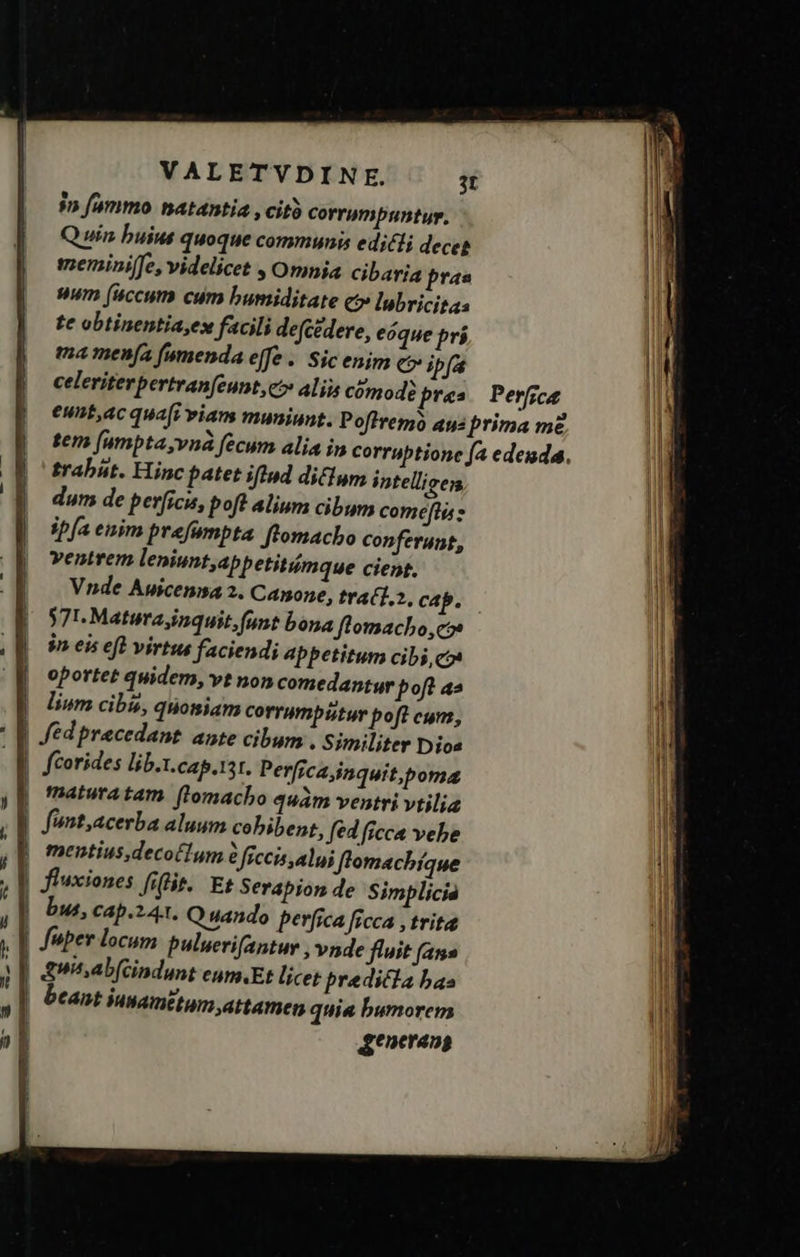 VALETVDINE. 31
in ſummo natantia , citò corrumpuntur.
Quin huius quoque communis edicti decet
meminiſſe, videlicet , Omnia cibaria praa
uum ſuccum cum humiditate & lubricitaa
te obtinentia,ex facili deſcẽdere, eóque pri
ma menſa ſumenda eſſe . Sic enim & ipſa
celeriter pertranſeunt,& aliis cõmodè præa Perſica
eunt,ac quaſi viam muniunt. Poſtremò aua prima mẽ
tem ſumpta,vnà ſecum alia in corruptione ſa edenda.
trahũt. Hinc patet iſtud dictum intelligen
dum de perſicis, poſt alium cibum comeſtis:
ipſa enim præſumpta ſtomacho conferunt,
ventrem leniunt,appetitúmque cient.
Vnde Auicenna 2. Canone, tract.2. cap.
571. Matura,inquit,ſunt bona ſtomacho,&
in eis eſt virtus faciendi appetitum cibi,&
oportet quidem, vt non comedantur poſt aa
lium cibũ, quoniam corrumpũtur poſt eum,
ſed præcedant ante cibum . Similiter Dioa
ſcorides lib.1.cap.131. Perſica,inquit,poma
matura tam ſtomacho quàm ventri vtilia
ſunt,acerba aluum cohibent, ſed ſicca vehe
mentius,decoctum è ſiccis,alui ſtomachíque
fluxiones ſiſtit. Et Serapion de Simplicia
bus, cap.241. Quando perſica ſicca , trita
ſuper locum pulueriſantur , vnde fluit ſana
guis,abſcindunt eum.Et licet prædicta haa
beant iuuamẽtum,attamen quia humorem
generang